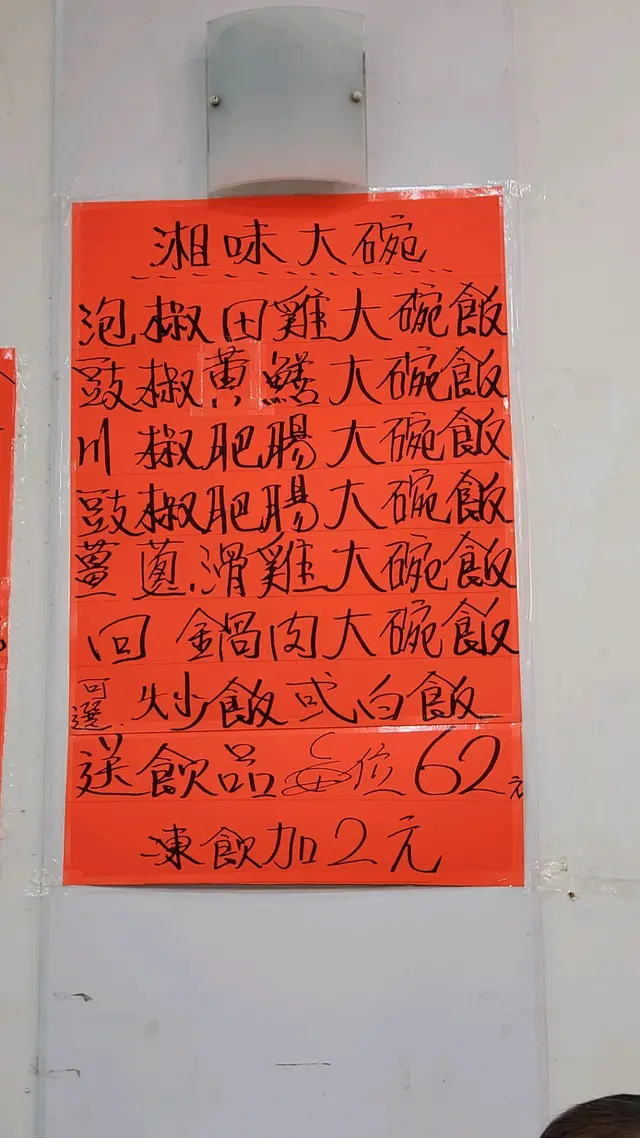 湘味大碗
泡椒田雞大碗飯
豉椒黄鱔大碗飯
川椒肥腸大碗飯
豉椒肥腸大碗飯
薑蔥滑雞大碗飯
回鍋肉大碗飯
可選炒飯或白飯
送飲品每位62元
凍飲加2元